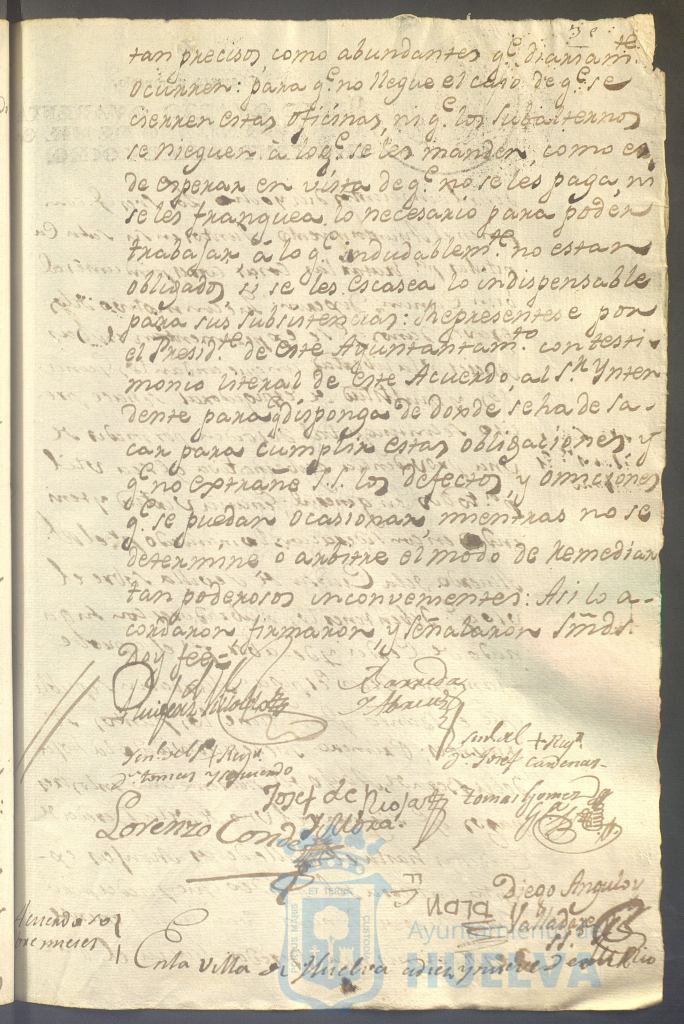 tan precisos como abundantes q.e diariam.te
ocurren: para q.e no llegue el caso de q.e se
cierren estas oficinas, ni q.e los subalternos
se nieguen à lo q.e se les manden, como es
de esperar en vista de q.e no se les paga, ni
se les franquea lo necesario para poder
trabajar à lo q.e indudablem.te no estan
obligados si se les escasea lo indispensable
para sus subsistencias: Representese por
el Presid.te de este Ayuntantam.to con testi-
monio literal de este Acuerdo, al S.r Ynten
dente para q.e disponga de donde se ha de sa-
car para cumplir estas obligaciones, y
q.e no extrañe S.S. los defectos, y omiciones
q.e se puedan ocasionar, mientras no se
determine o arbitre el modo de remediar
tan poderosos inconvenientes: Asi lo a-
cordaron firmaron, y señalaron Smds.
Doy fee=
Barreda
Señ.l del + Rejr.
D.n Tomas Yzquierdo
Señ.l del + Rejr.
D.n Josef Cardenas
Josef de Rioja
Tomas Gomez
Lorenzo Conde
y Mora
Diego Angulo y
Valladares
En la villa de Huelva a diez y nueve de
ET TERRE
PORTUS MARIS
CUSTODIA
Ayuntamiento de
HUELVA